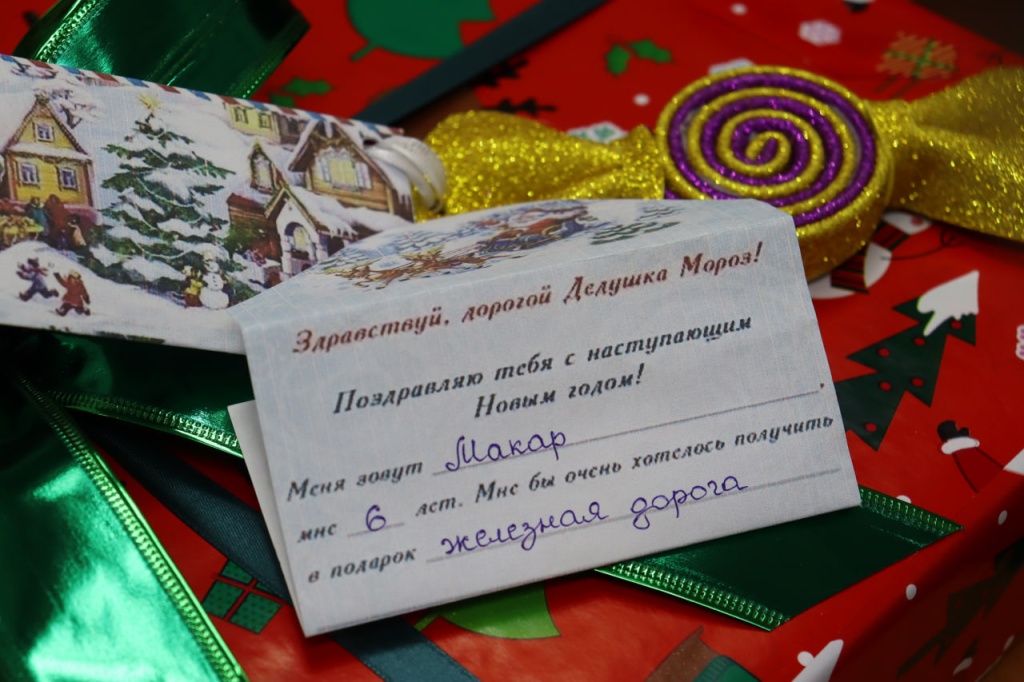 Здравствуй, дорогой Дедушка Мороз!
Поздравляю тебя с наступающим
Новым годом!
Меня зовут Макар,
мне 6 лет. Мне бы очень хотелось получить
в подарок железная дорога